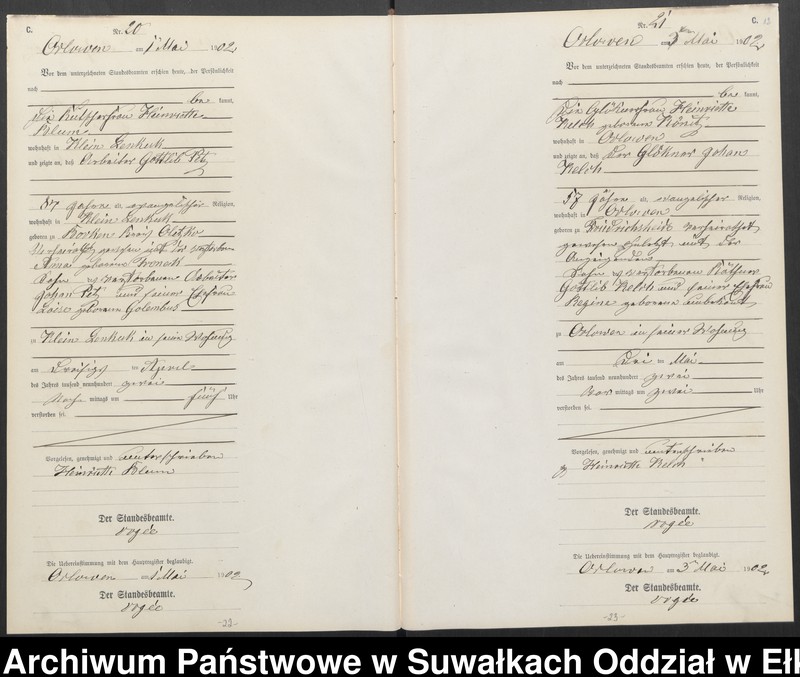 C.
Nr. 20
Orlowen am 1 Mai 1902
Vor dem unterzeichneten Standesbeamten erschien heute, der Persönlichkeit
nach
be kannt,
die Kutscherfrau Heinriette
Blum
wohnhaft in Klein Lenkuk
und zeigte an, daß Arbeiter Gottlib
Jahre evangelischer Religion,
wohnhaft in Klein Lenkuk
geboren zu Borken Kreis Oletzko
verheirathet gewesen mit der verstorbenen
geborene
Sohn verstorbenen Arbeiter
Johan und seiner Ehefrau
geborene Golembus
zu Klein Lenkuk in seine Wohnung
am Dreißigsten April
des Jahres tausend neunhundert zwei
Nach mittags um fünf Uhr
verstorben sei.
Vorgelesen, genehmigt und unterschrieben
Heinriette Blum
Der Standesbeamte.
Die Uebereinstimmung mit dem Hauptregister beglaubigt.
Orlowen am 1 Mai 1902
Der Standesbeamte.
-22-
Nr. 21
C. 13
Orlowen am 3 Mai 1902
Vor dem unterzeichneten Standesbeamten erschien heute, der Persönlichkeit
nach
be kannt,
die Glöknerfrau Heinriette
Kelch geborene König
wohnhaft in Orlowen
und zeigte an, daß der Glökner Johan
Kelch
57 Jahre evangelischer Religion,
wohnhaft in Orlowen
geboren zu Friedrichsheide verheirathet
gewesen mit der
Anzeigenden
Sohn verstorbenen Käthner
Gottlib Kelch und seiner Ehefrau
Regine geborene unbekant
zu Orlowen in seiner Wohnung
am Drei ten Mai
des Jahres tausend neunhundert zwei
Vor mittags um zwei Uhr
verstorben sei.
Vorgelesen, genehmigt und unterschrieben
Heinriette Kelch
Der Standesbeamte.
Die Uebereinstimmung mit dem Hauptregister beglaubigt.
Orlowen am 3 Mai 1902
Der Standesbeamte.
-23-
Archiwum Państwowe w Suwałkach Oddział w Ełk